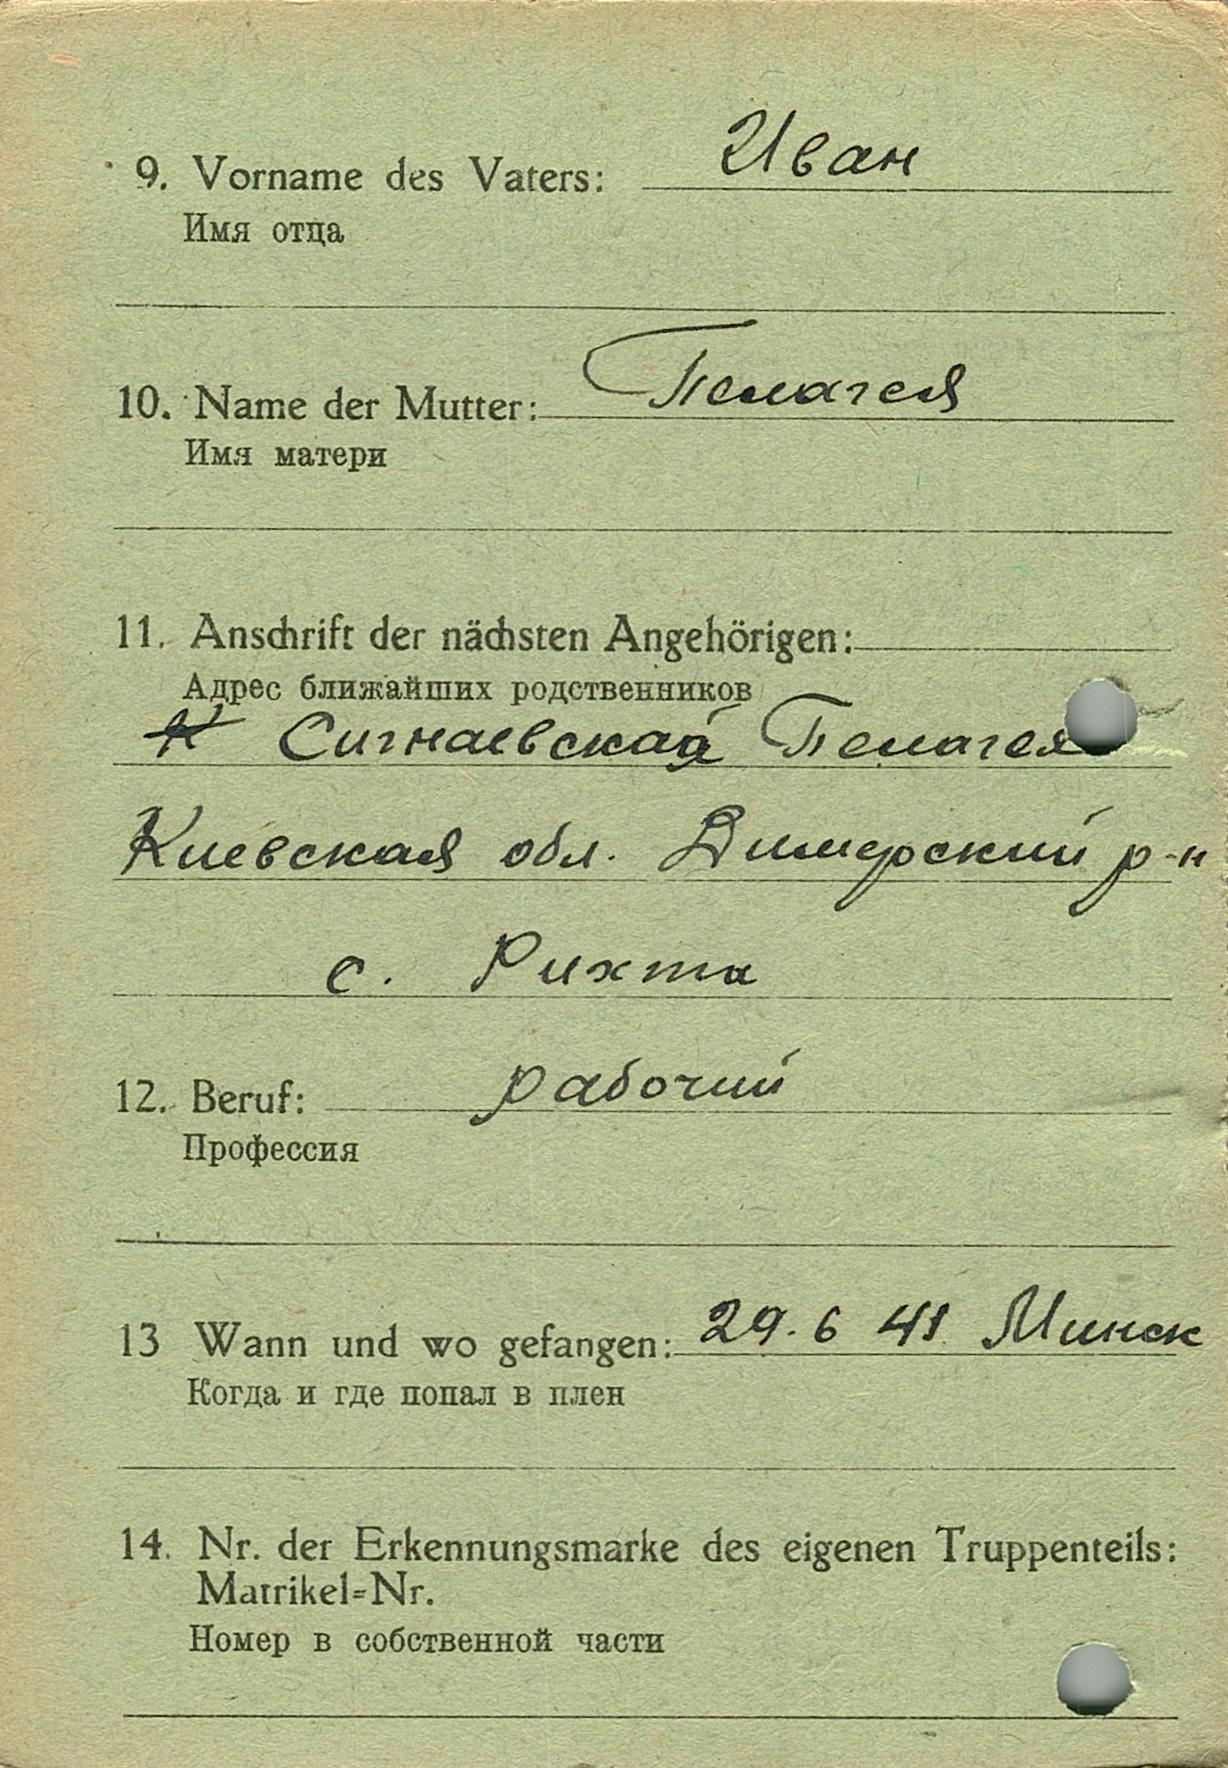 9. Vorname des Vaters: Иван
Имя отца
10. Name der Mutter: Пелагея
Имя матери
11. Anschrift der nächsten Angehörigen:
Адрес ближайших родственников
Сигнаевская Пелагея
Киевская обл. Димерский р-н
с. Рихта
12. Beruf: рабочий
Профессия
13 Wann und wo gefangen: 29. 6 41 Минск
Когда и где попал в плен
14. Nr. der Erkennungsmarke des eigenen Truppenteils:
Matrikel=Nr.
Номер в собственной части